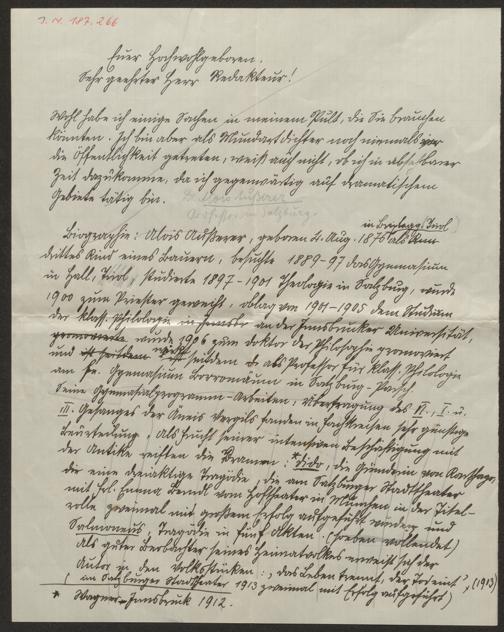 I. N. 187.266
Euer Hochwohlgeboren.
Sehr geehrter Herr Redakteur!
Wohl habe ich einige Sachen in meinem Pult, die Sie brauchen
könnten. Ich bin aber als Mundartdichter noch niemals vor
die Öffentlichkeit getreten, weiß auch nicht, ob ich in absehbarer
Zeit dazukomme, da ich gegenwärtig auf dramatischem
Gebiete tätig bin.
Professor in Salzburg.
Biographie: Alois Außerer, geboren 4. Aug. 1876 als
drittes Kind eines Bauern, besuchte 1889-97 das Gymnasium
in Hall, Tirol, studierte 1897-1901 Theologie in Salzburg, wurde
1900 zum Priester geweiht, oblag von 1901-1905 dem Studium
der klass. Philologie in an der Innsbrucker Universität,
wurde 1906 zum Doktor der Philosophie promoviert
und seitdem als Professor für klass. Philologie
am fe. Gymnasium Borromäum in Salzburg-Parsch.
Seine Gymnasialprogramm-Arbeiten: Übertragung des VI., I. u.
III. Gesanges der Äneis Vergils fanden in Fachkreisen sehr günstige
Beurteilung. Als Frucht seiner intensiven Beschäftigung mit
der Antike reiften die Dramen: *Dido, die Gründerin von Karthago,
eine dreiaktige Tragödie, die am Salzburger Stadttheater
mit Frl. Emma Berndl vom Hoftheater in München in der Titel-
rolle zweimal mit großem Erfolg aufgeführt wurde, und
Salmoneus, Tragödie in fünf Akten. (soeben vollendet)
Als guter Beobachter seines Heimatvolkes erweist sich der
Autor in den Volksstücken: „das Leben trennt, der Tod eint", (1913)
(im Salzburger Stadttheater 1913 zweimal mit Erfolg aufgeführt)
* Wagner-Innsbruck 1912.